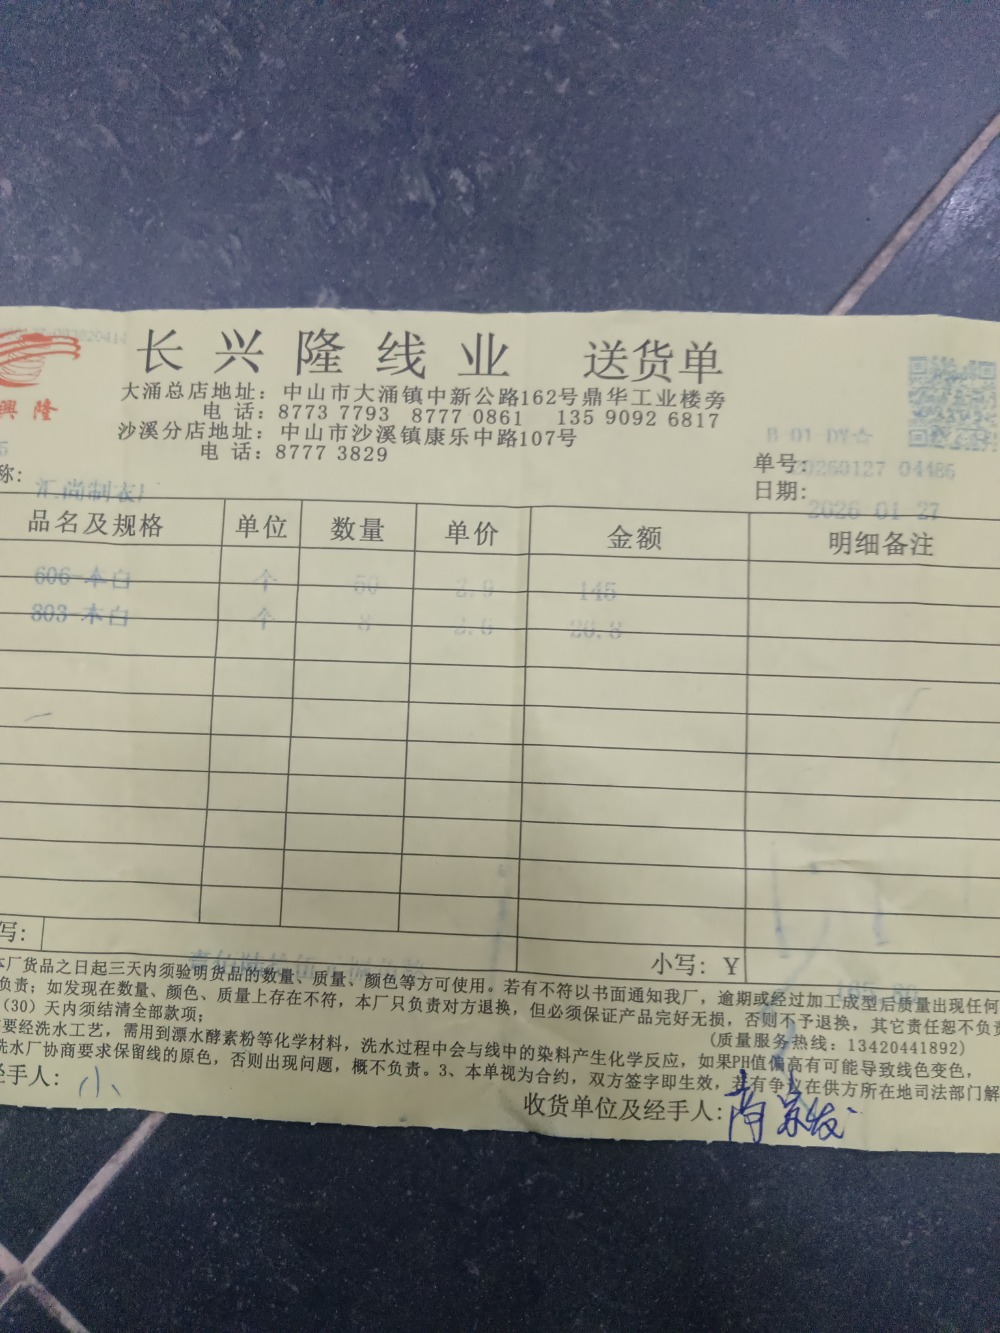 长兴隆线业 送货单
興隆
大涌总店地址：中山市大涌镇中新公路162号鼎华工业楼旁
电 话：8773 7793 8777 0861 135 9092 6817
沙溪分店地址：中山市沙溪镇康乐中路107号
电 话：8777 3829
B-01-DY☆
单号：20260127 04486
称：汇尚制衣厂
日期：2026 01 27
品名及规格 单位 数量 单价 金额 明细备注
606-本白 个 50 2.9 145
803-本白 个 8 2.6 20.8
写：
小写：￥
本厂货品之日起三天内须验明货品的数量、质量、颜色等方可使用。若有不符以书面通知我厂，逾期或经过加工成型后质量出现任何
负责；如发现在数量、颜色、质量上存在不符，本厂只负责对方退换，但必须保证产品完好无损，否则不予退换，其它责任恕不负责
（30）天内须结清全部款项；
(质量服务热线：13420441892)
要经洗水工艺，需用到漂水酵素粉等化学材料，洗水过程中会与线中的染料产生化学反应，如果PH值偏高有可能导致线色变色，
洗水厂协商要求保留线的原色，否则出现问题，概不负责。3、本单视为合约，双方签字即生效，若有争议在供方所在地司法部门解
经手人：小
收货单位及经手人：